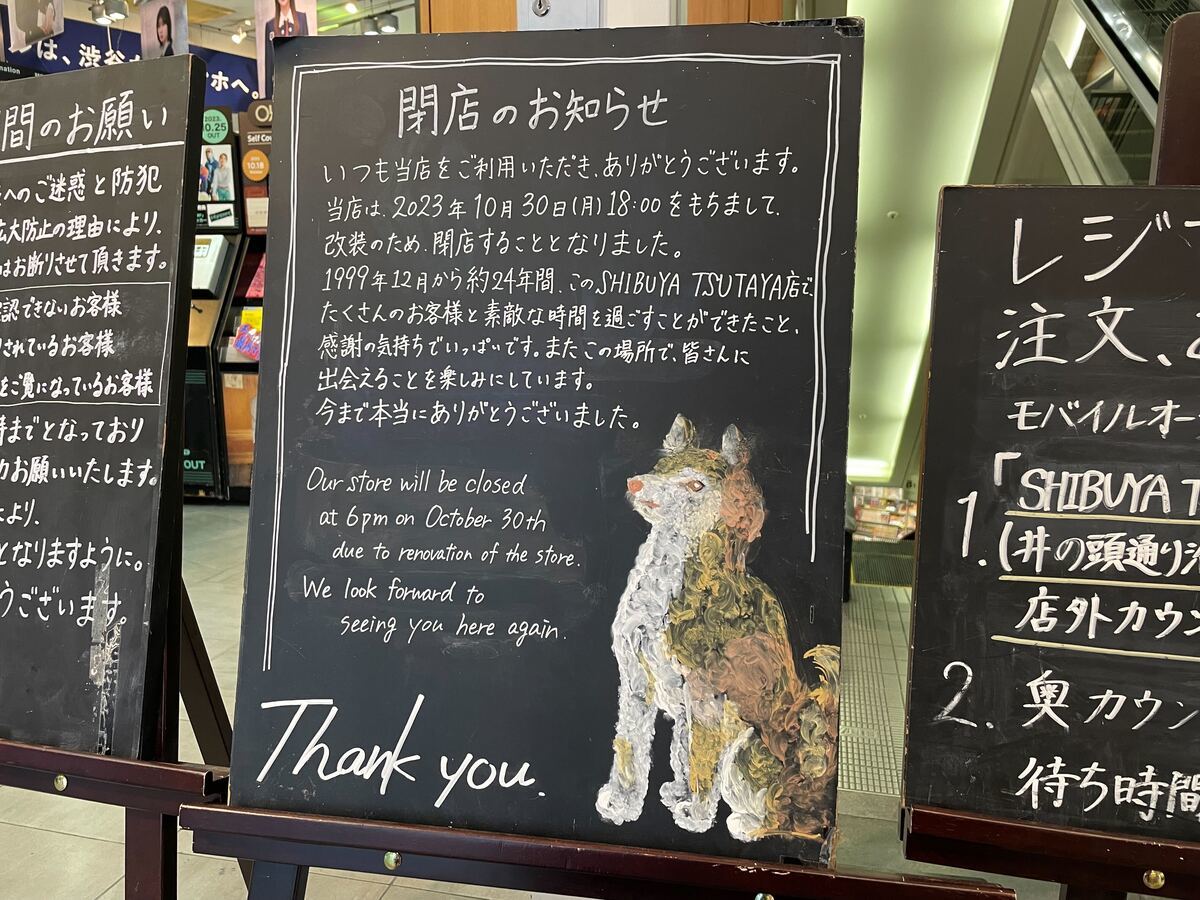 は、渋谷
ホへ。
2023.
10.25
OUT
Self Cov
10.18
OUT
間のお願い
へのご迷惑と防犯
拡大防止の理由により、
はお断りさせて頂きます。
認できないお客様
されているお客様
をご覧になっているお客様
時までとなっており
力お願いいたします。
より、
となりますように。
うございます。
閉店のお知らせ
いつも当店をご利用いただき、ありがとうございます。
当店は、2023年10月30日(月)18:00をもちまして、
改装のため、閉店することとなりました。
1999年12月から約24年間、このSHIBUYA TSUTAYA店で、
たくさんのお客様と素敵な時間を過ごすことができたこと、
感謝の気持ちでいっぱいです。またこの場所で、皆さんに
出会えることを楽しみにしています。
今まで本当にありがとうございました。
Our store will be closed
at 6pm on October 30th
due to renovation of the store.
We look forward to
seeing you here again.
Thank you.
レジ
注文、
モバイルオー
1.「SHIBUYA T
(井の頭通り
店外カウン
2. 奥カウン
待ち時間